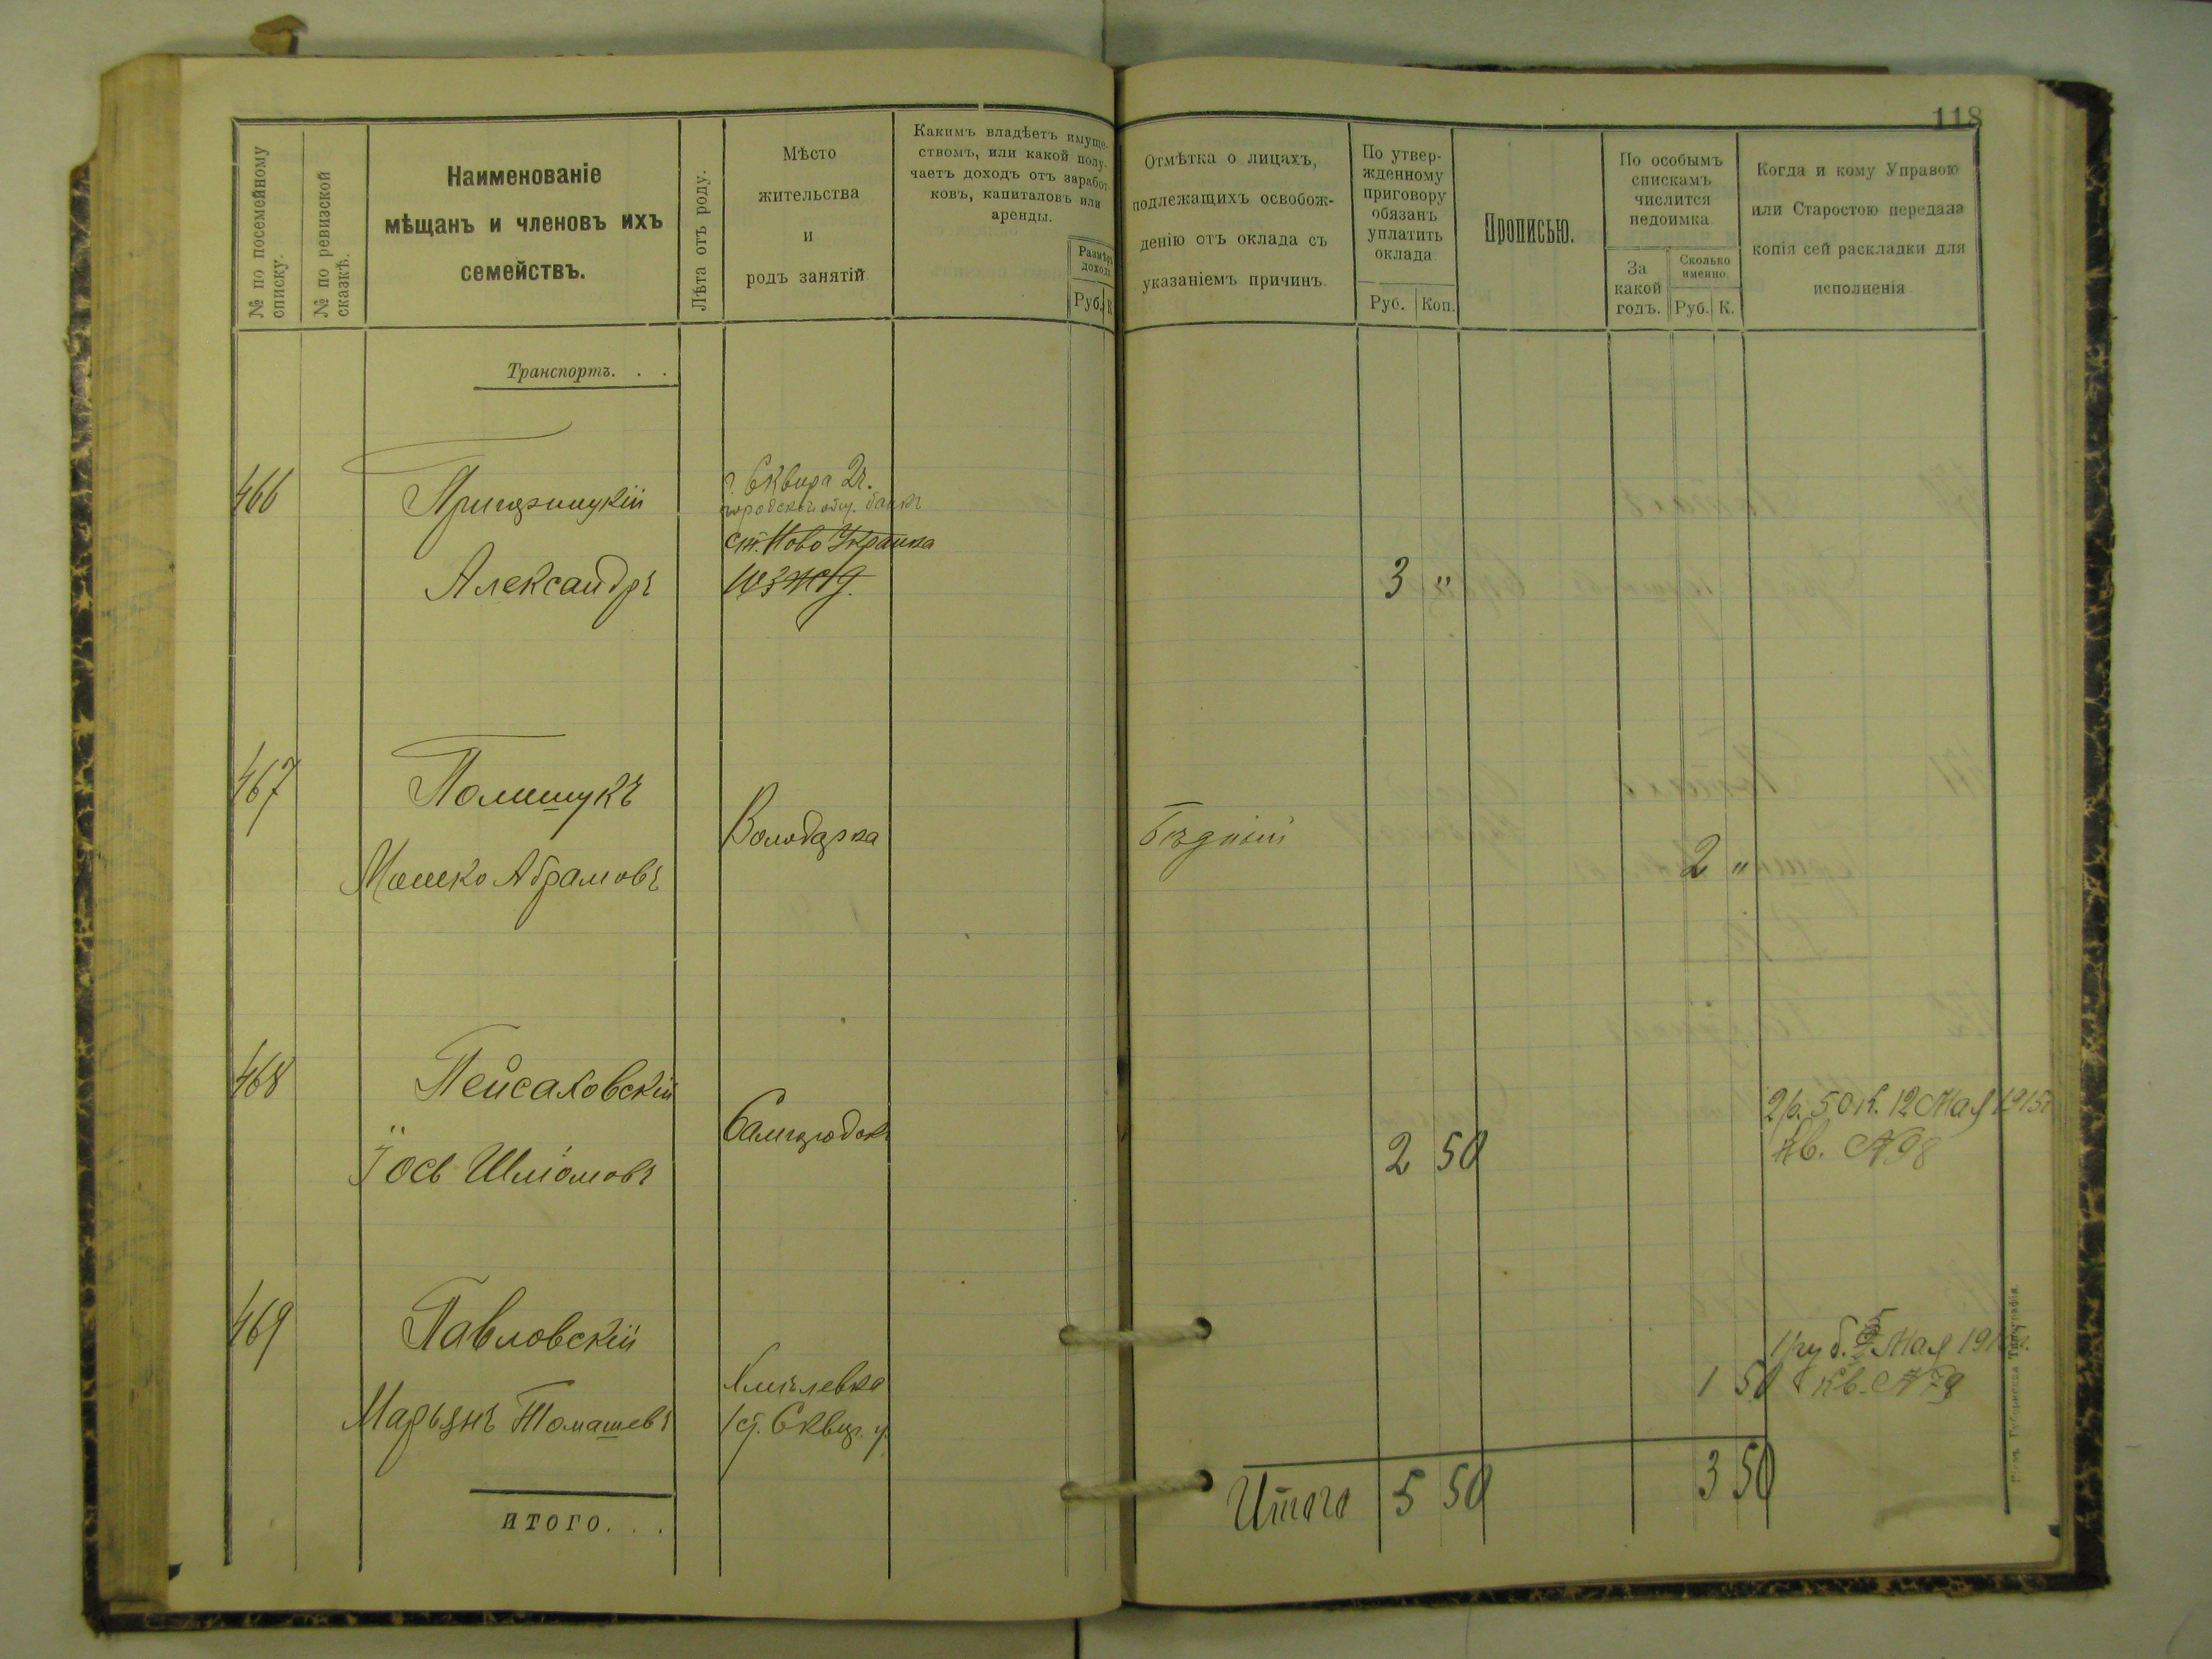 118
№ по посемейному
списку.
№ по ревизской
сказкѣ.
Наименованіе
мѣщанъ и членовъ ихъ
семействъ.
Лѣта отъ роду.
Мѣсто
жительства
и
родъ занятій
Какимъ владѣетъ имуще-
ствомъ, или какой полу-
чаетъ доходъ отъ заработ-
ковъ, капиталовъ или
аренды.
Размѣръ
дохода
Руб. К
Отмѣтка о лицахъ,
подлежащихъ освобож-
денію отъ оклада съ
указаніемъ причинъ
По утвер-
жденному
приговору
обязанъ
уплатить
оклада
Руб. Коп.
Прописью.
По особымъ
спискамъ
числится
недоимка
За
какой
годъ.
Сколько
именно
Руб. К.
Когда и кому Управою
или Старостою передана
копія сей раскладки для
исполненія
Транспортъ. . .
466
Александръ
г. Сквира 2г.
городской общ. банкъ
ст. Ново Украинка
ЮЗЖД.
3 "
467
Полишукъ
Мошко Абрамовъ
Володарка
Бѣдный
2 "
468
Пейсаховскій
Іось Шліомовъ
2 50
2р. 50к. 12 Мая 1915г
Кв. №98
469
Павловскій
Марьянъ Томашевъ
Сквир. у.
1 50
1 руб. Мая
Кв. № 79
ИТОГО. . .
Итого 5 50
3 50